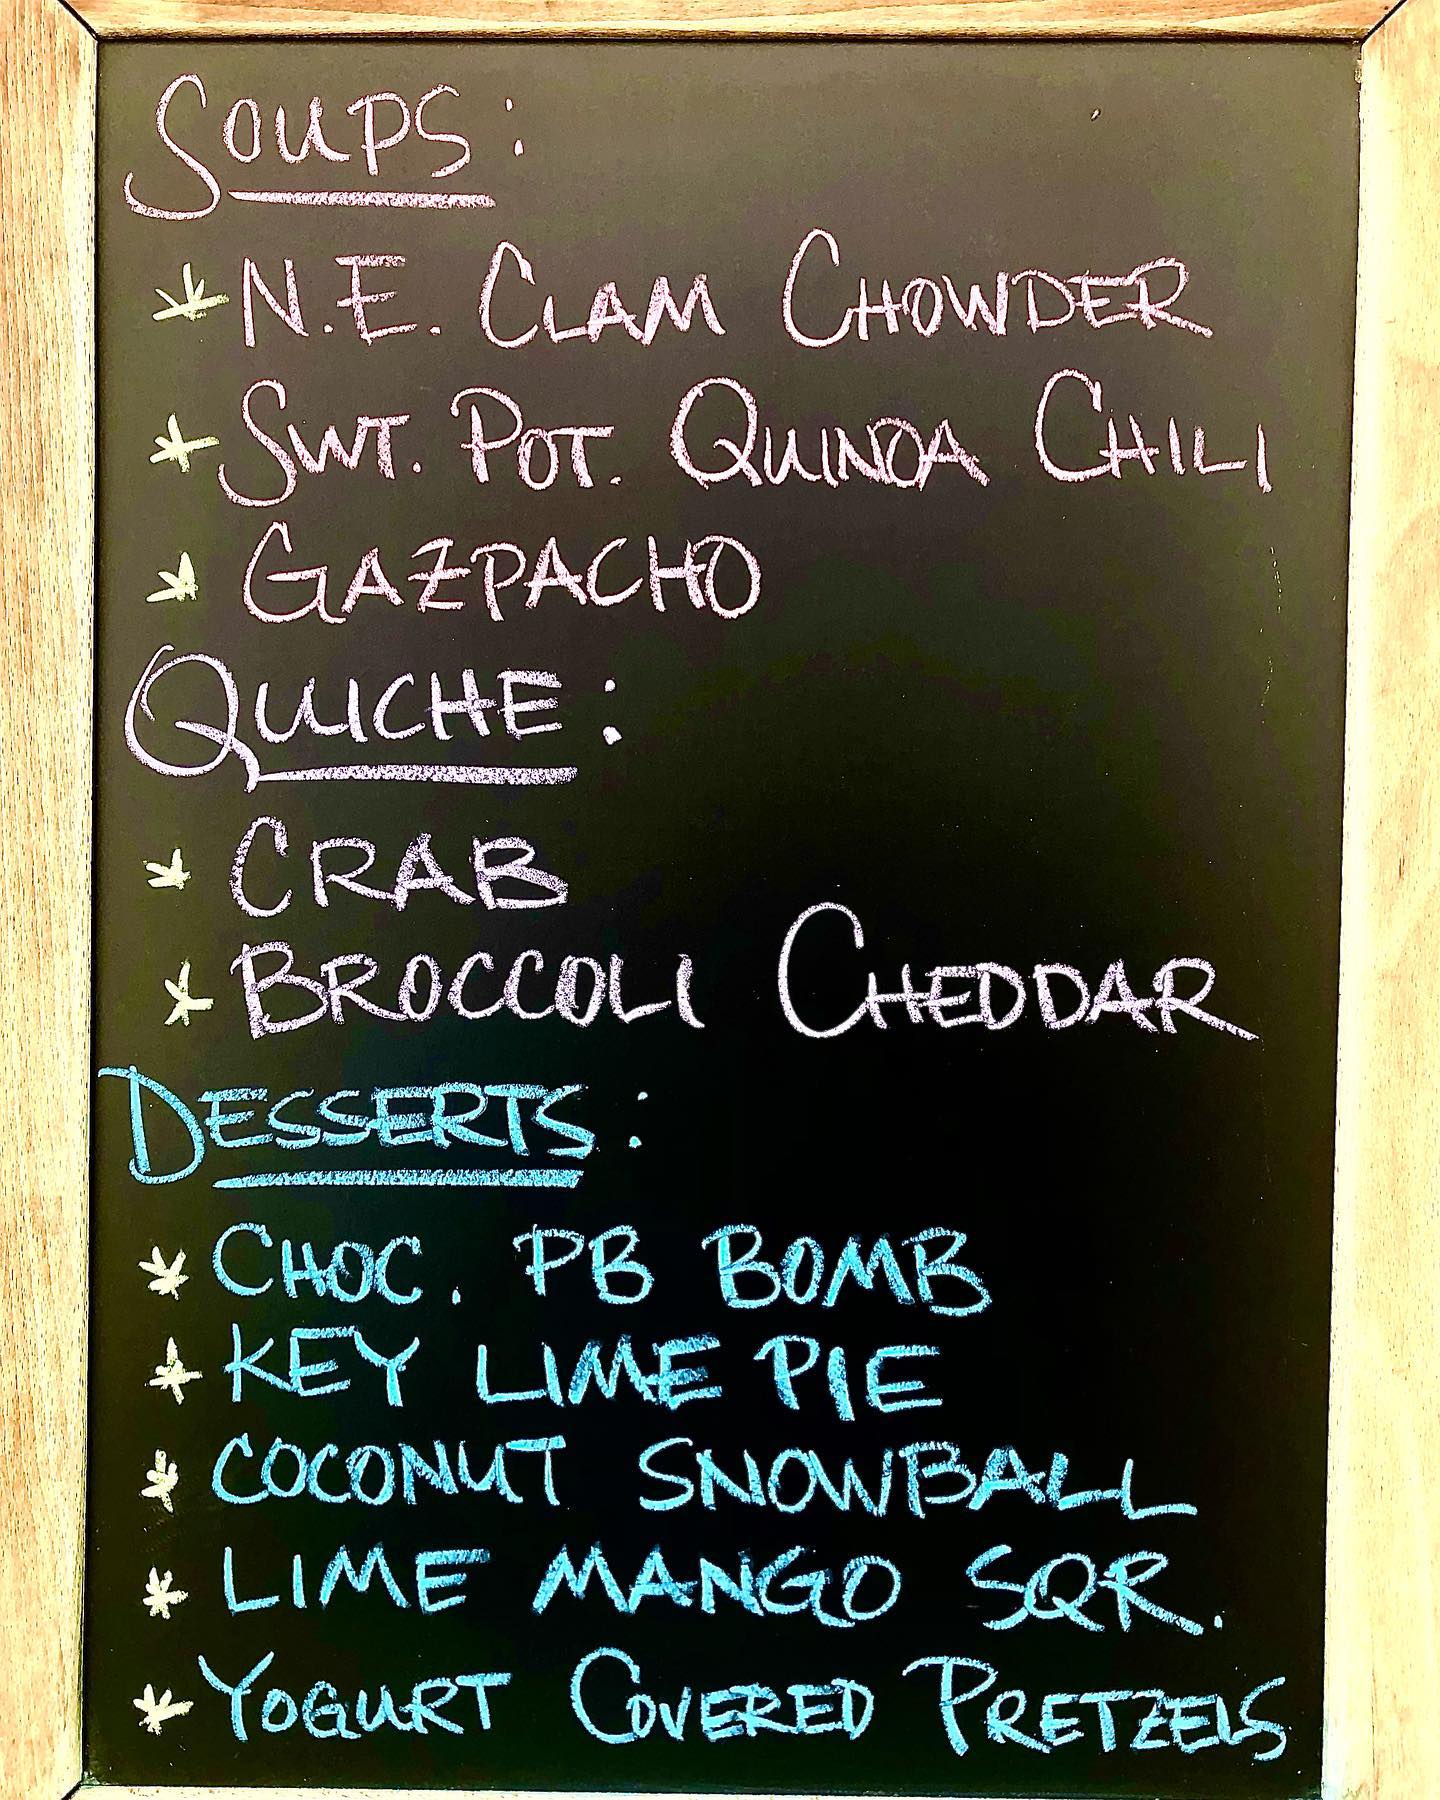 SOUPS:
* N.E. CLAM CHOWDER
* SWT. POT. QUINOA CHILI
* GAZPACHO
QUICHE:
* CRAB
* BROCCOLI CHEDDAR
DESSERTS:
* CHOC. PB BOMB
* KEY LIME PIE
* COCONUT SNOWBALL
* LIME MANGO SQR.
* YOGURT COVERED PRETZELS